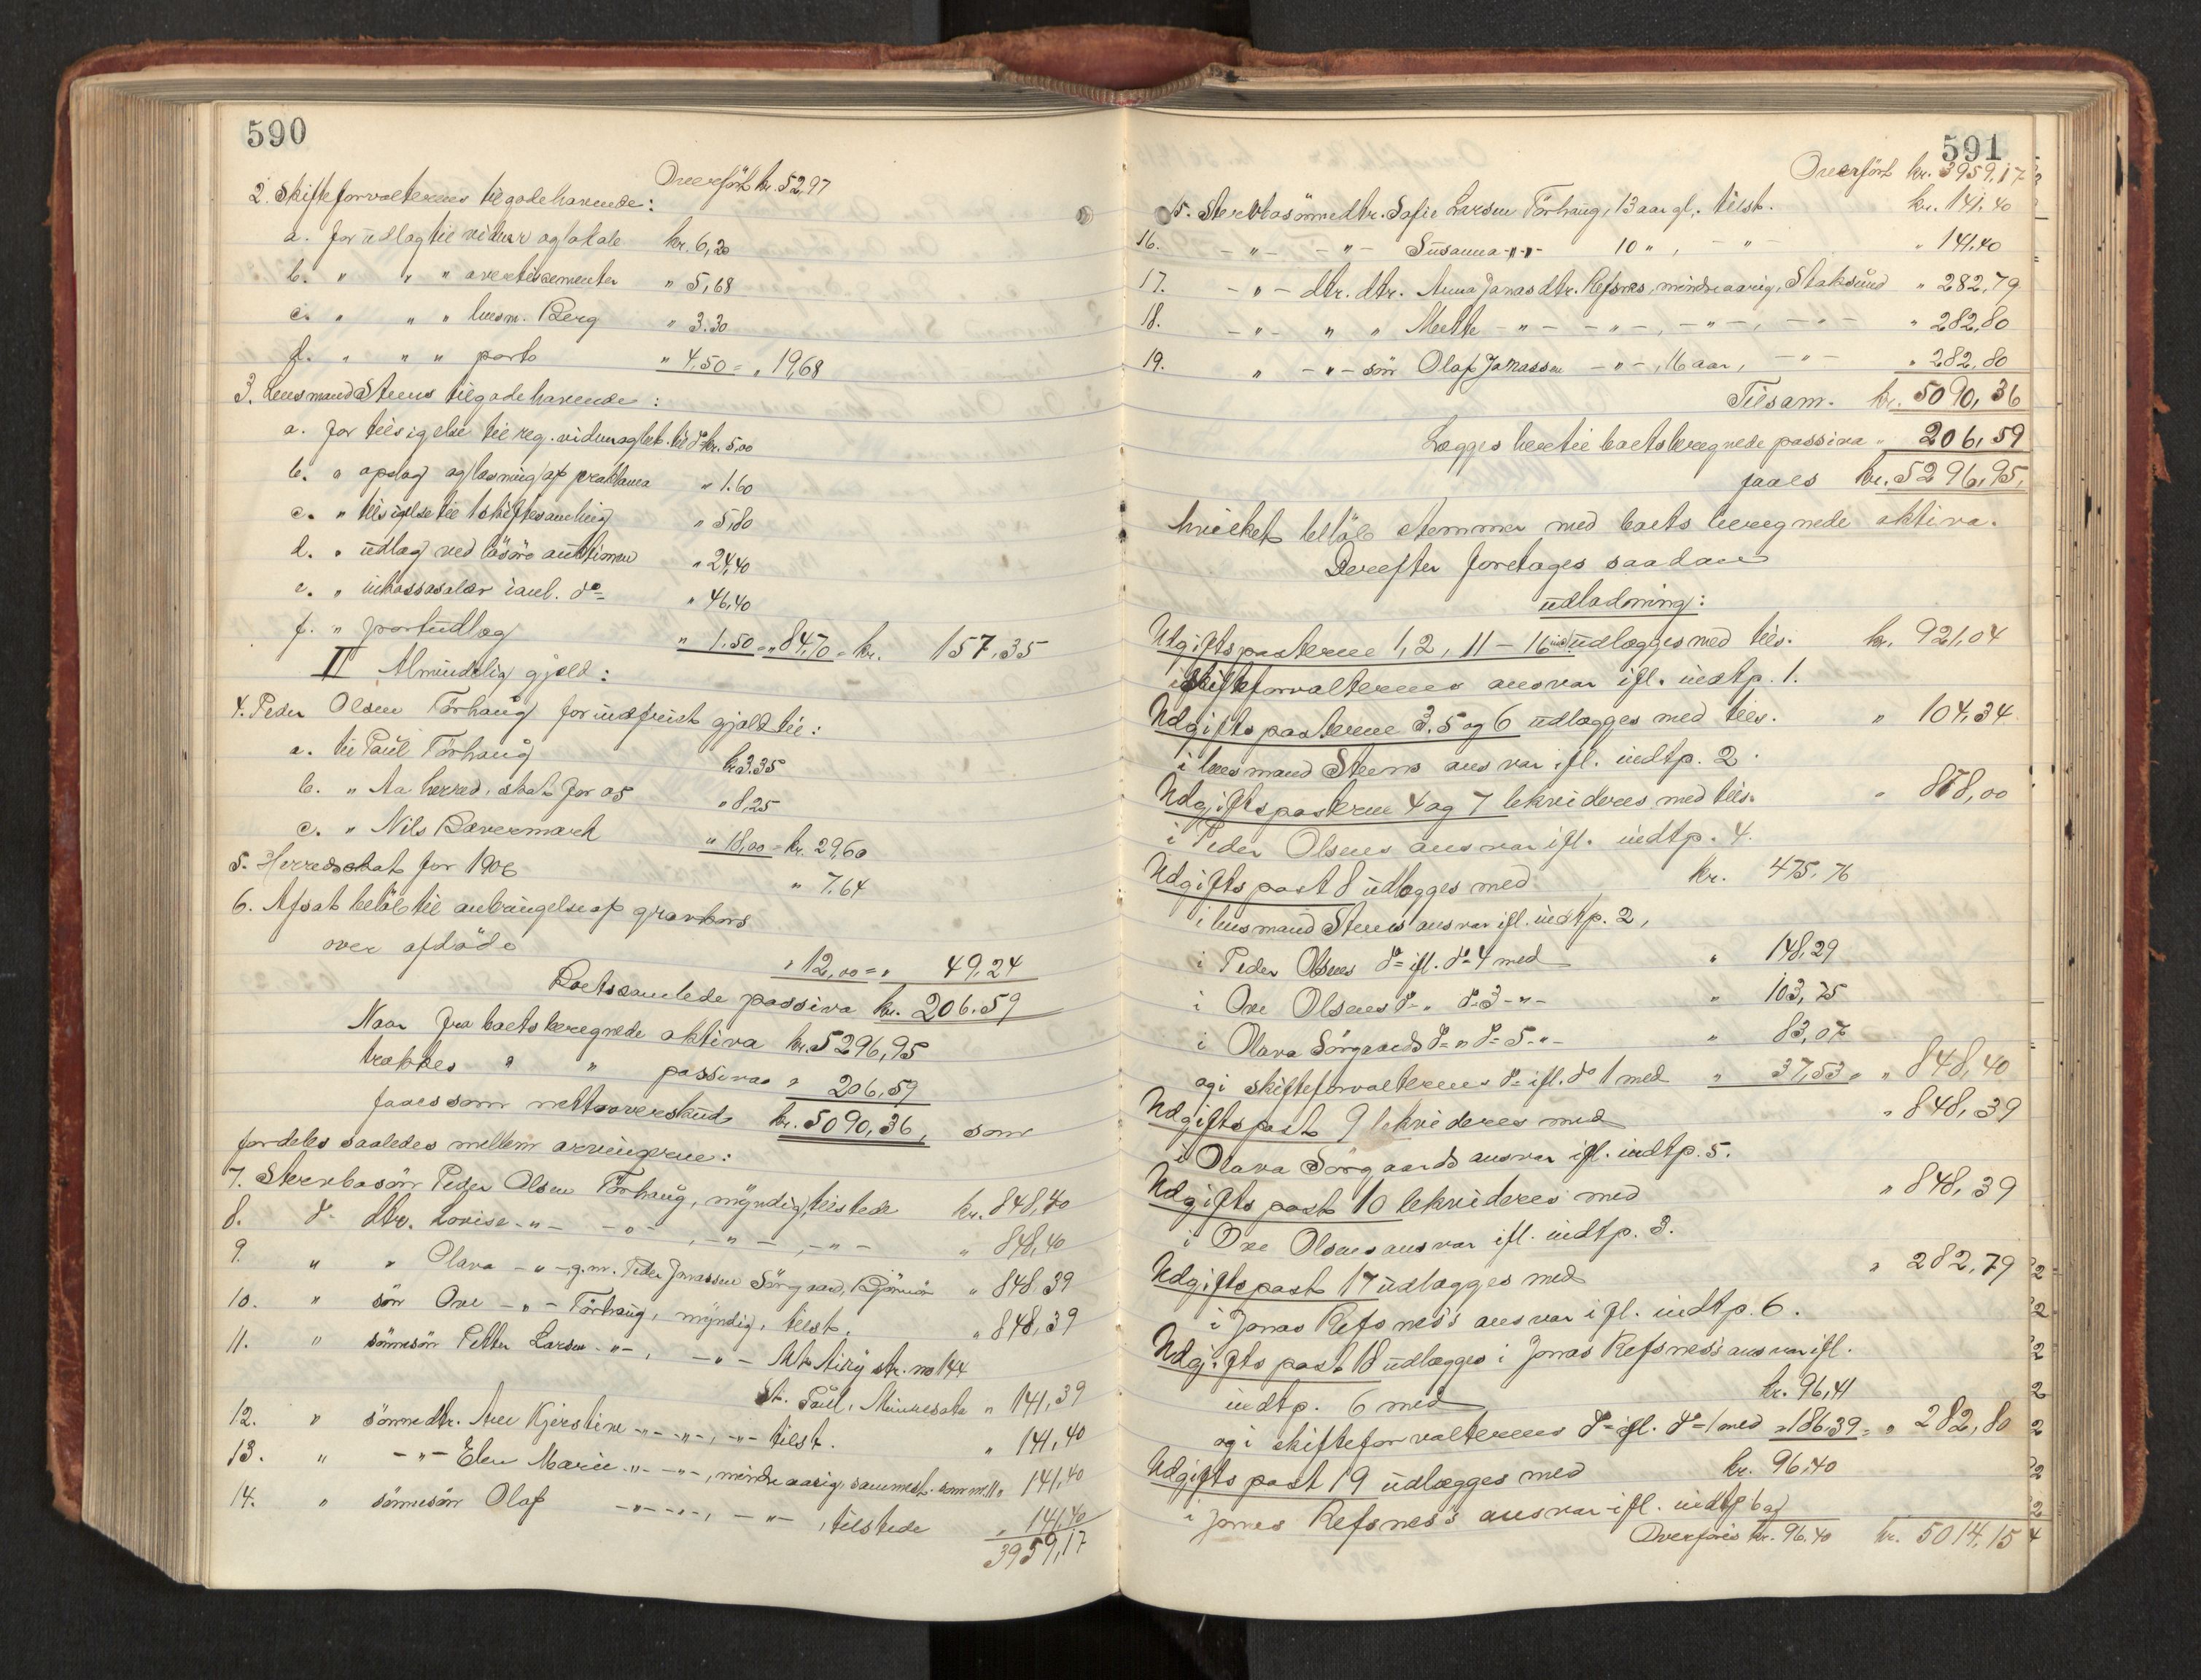 590
Overført kr. 52,97
2. Skifteforvalterens tilgodehavende:
a. for udlæg til vidner og lokale kr. 6,20
b. " " " avertissementer " 5,68
c. " " " lensm. Berg " 3.30
d. " " " porto " 4,50 = " 19,68
3. Lensmand Steens tilgodehavende:
a. for tilsigelse til reg. vidner og lok. til do kr. 5,00
b. " opslag og læsning af proklama " 1.60
c. " tilsigelse til 1 skiftesamling " 5,80
d. " udlæg ved løsøreauktionen " 24,40
e. " inkassasalær i anl. do " 46,40
f. " portoudlæg " 1.50 = " 84,70 = kr. 157,35
II Almindelig gjæld:
4. Peder Olsen Førhaug for indfriet gjæld til:
a. til Paul Førhaug kr 3.35
b. " Aa herred, skat for 05 " 8,25
c. " Nils Bævermark " 18,00 = kr. 29,60
5. Herredsskat for 1906 " 7.64
6. Afsat beløb til anbringelse af gravkors
over afdøde " 12,00 = " 49,24
Boets samlede passiva kr. 206.59
Naar fra boets beregnede aktiva kr. 5296,95
trækkes " " passiva " 206,59
faaes som nettooverskud kr. 5090,36, som
fordeles saaledes mellem arvingerne:
7. Stervbosøn Peder Olsen Førhaug, myndig, tilstede kr. 848,40
8. do dtr. Lovise -"- -"-, -"-, -"- " 848,40
9. " " Olava -"- g.m. Peder Jonassen Sørgaard, Bjørnør " 848.39
10. " søn Ove -"- Førhaug, myndig, tilst. " 848,39
11. " sønnesøn Petter Larsen -"-, -"- str. no 144
St. Paul, Minnesota " 141,39
12. " sønnedtr. Ane Kjerstine -"- -"-, -"- tilst. " 141,40
13. " -"- Elen Marie -"- -"-, mindreaarig, sammest. som nr. 11 " 141,40
14. " sønnesøn Olaf -"- -"-, -"-, tilstede " 141,40
3959,17
591
Overført kr. 3959,17
15. Stervbosønnedtr. Sofie Larsen Førhaug, 13 aar gl., tilst. kr. 141,40
16. -"- -"- Susanna -"-"- 10 ", -"- " 141,40
17. -"- dtr. dtr. Anna Jonasdtr. Refsnes, mindreaarig, Stoksund " 282,79
18. -"- " " Mette -"- -"-, -"-, -"- " 282,80
19. " -"- søn Olaf Jonassen -"-, 16 aar, -"- " 282,80
Tilsam. kr. 5090,36
Lægges hertil boets beregnede passiva " 206,59
faaes kr. 5296,95,
hvilket beløb stemmer med boets beregnede aktiva.
Derefter foretages saadan
udlodning:
Udgiftsposterne 1, 2, 11 - 16 incl. udlægges med tils. kr. 921,04
i skifteforvalterens ansvar ifl. indtp. 1.
Udgiftsposterne 3. 5 og 6 udlægges med tils. " 104,34
i lensmand Steens ansvar ifl. indtp. 2.
Udgiftsposterne 4 og 7 lekvideres med tils. " 878,00
i Peder Olsens ansvar ifl. indtp. 4.
Udgiftspost 8 udlægges med kr. 475,76
i lensmand Steens ansvar ifl. indtp. 2,
i Peder Olsens do ifl. do 4 med " 148,29
i Ove Olsens do " do 3 -"- " 103,75
i Olava Sørgaards do " do 5 -"- " 83,07
og i skifteforvalterens do ifl. do 1 med " 37,53 = " 848,40
Udgiftspost 9 lekvideres med " 848,39
i Olava Sørgaards ansvar ifl. indtp. 5.
Udgiftspost 10 lekvideres med " 848,39
i Ove Olsens ansvar ifl. indtp. 3.
Udgiftspost 17 udlægges med " 282,79
i Jonas Refsnes's ansvar ifl. indtp. 6.
Udgiftspost 18 udlægges i Jonas Refsnes's ansvar ifl.
indtp. 6 med kr. 96,41
og i skifteforvalterens do ifl. do 1 med " 186.39 = " 282,80
Udgiftspost 19 udlægges med kr. 96,40
i Jonas Refsnes's ansvar ifl. indtp. 6 og
Overføres kr. 96.40 kr. 5014,15